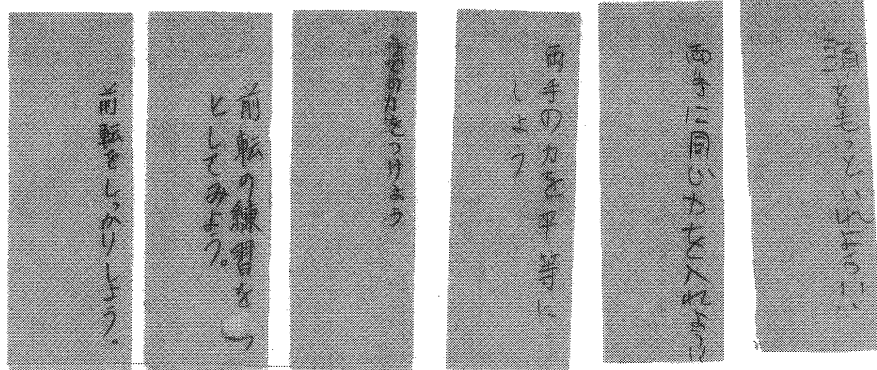 首をもっといれるに
両手に同じ力を入れるに
両手の力を平等に
しよう
力をつけよう
前転の練習を
としてみよう。
前転をしっかりしよう。